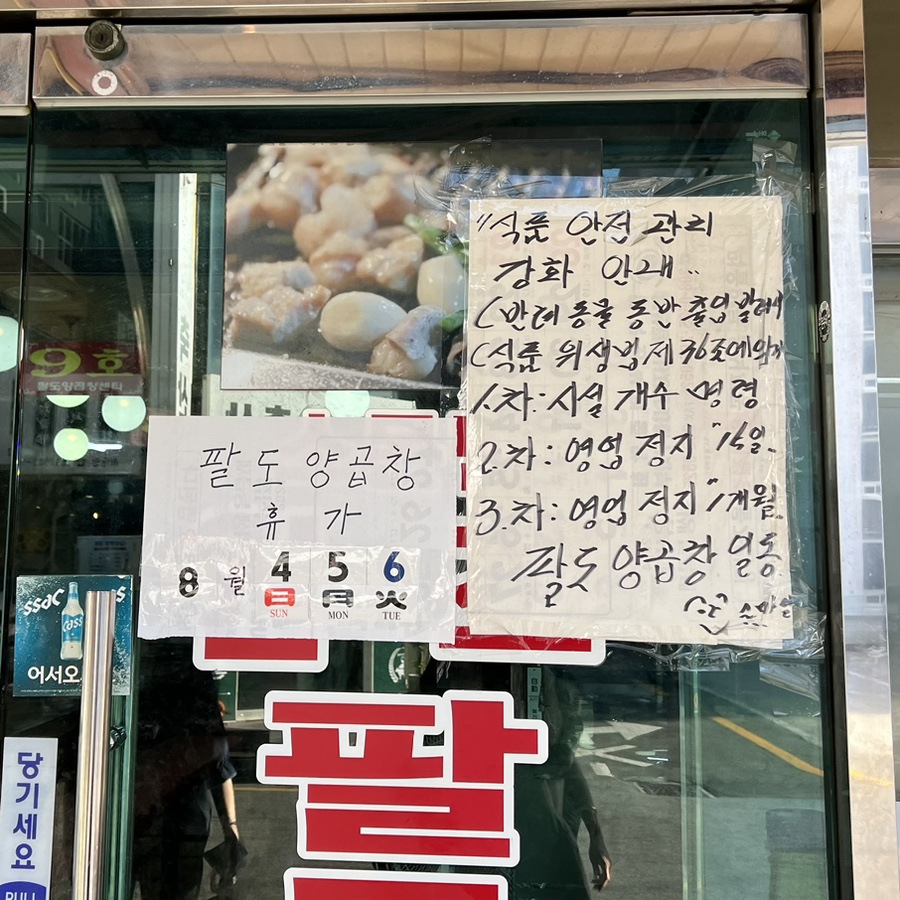 "식품 안전 관리
강화 안내"
(반려동물 동반 출입
(식품 위생법 제36조에
1.차: 시설 개수 명령
2.차: 영업 정지 "15일
3.차: 영업 정지 "1개월
팔도 양곱창 일동
9호
팔도양곱창센타
팔도양곱창
휴가
8월 4 5 6
日 月 火
SUN MON TUE
cass
어서오
당기세요
PULL
팔